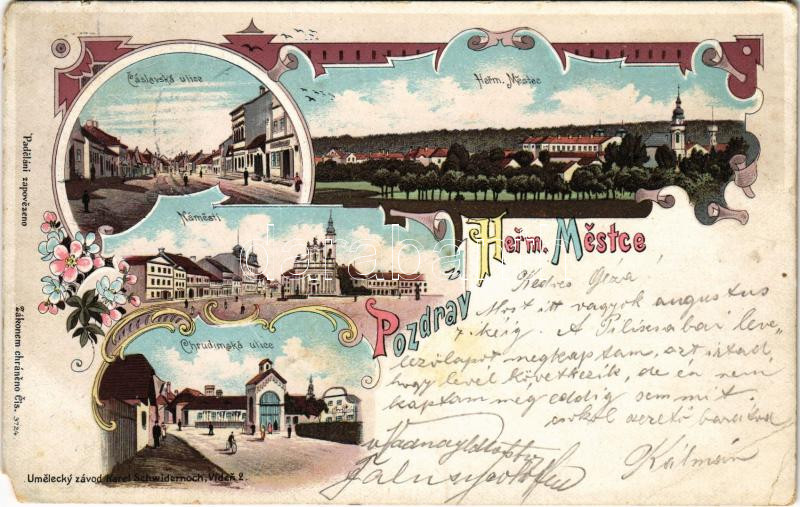 Čáslavská ulice
Heřm. Městec
Náměstí
Pozdrav z Heřm. Městce
Chrudimská ulice
Padělání zapovězeno
Zákonem chráněno Čís. 3724
Umělecký závod Karel Schwidernoch, Vídeň 2.
Kedves Géza
Most itt vagyok augustus
-keig. A Piliscsabai leve-
lezőlapot megkaptam, azt írtad,
hogy levél következik, de én nem
kaptam meg eddig semmit.
csókol szerető barátod
Kálmán
darabanth